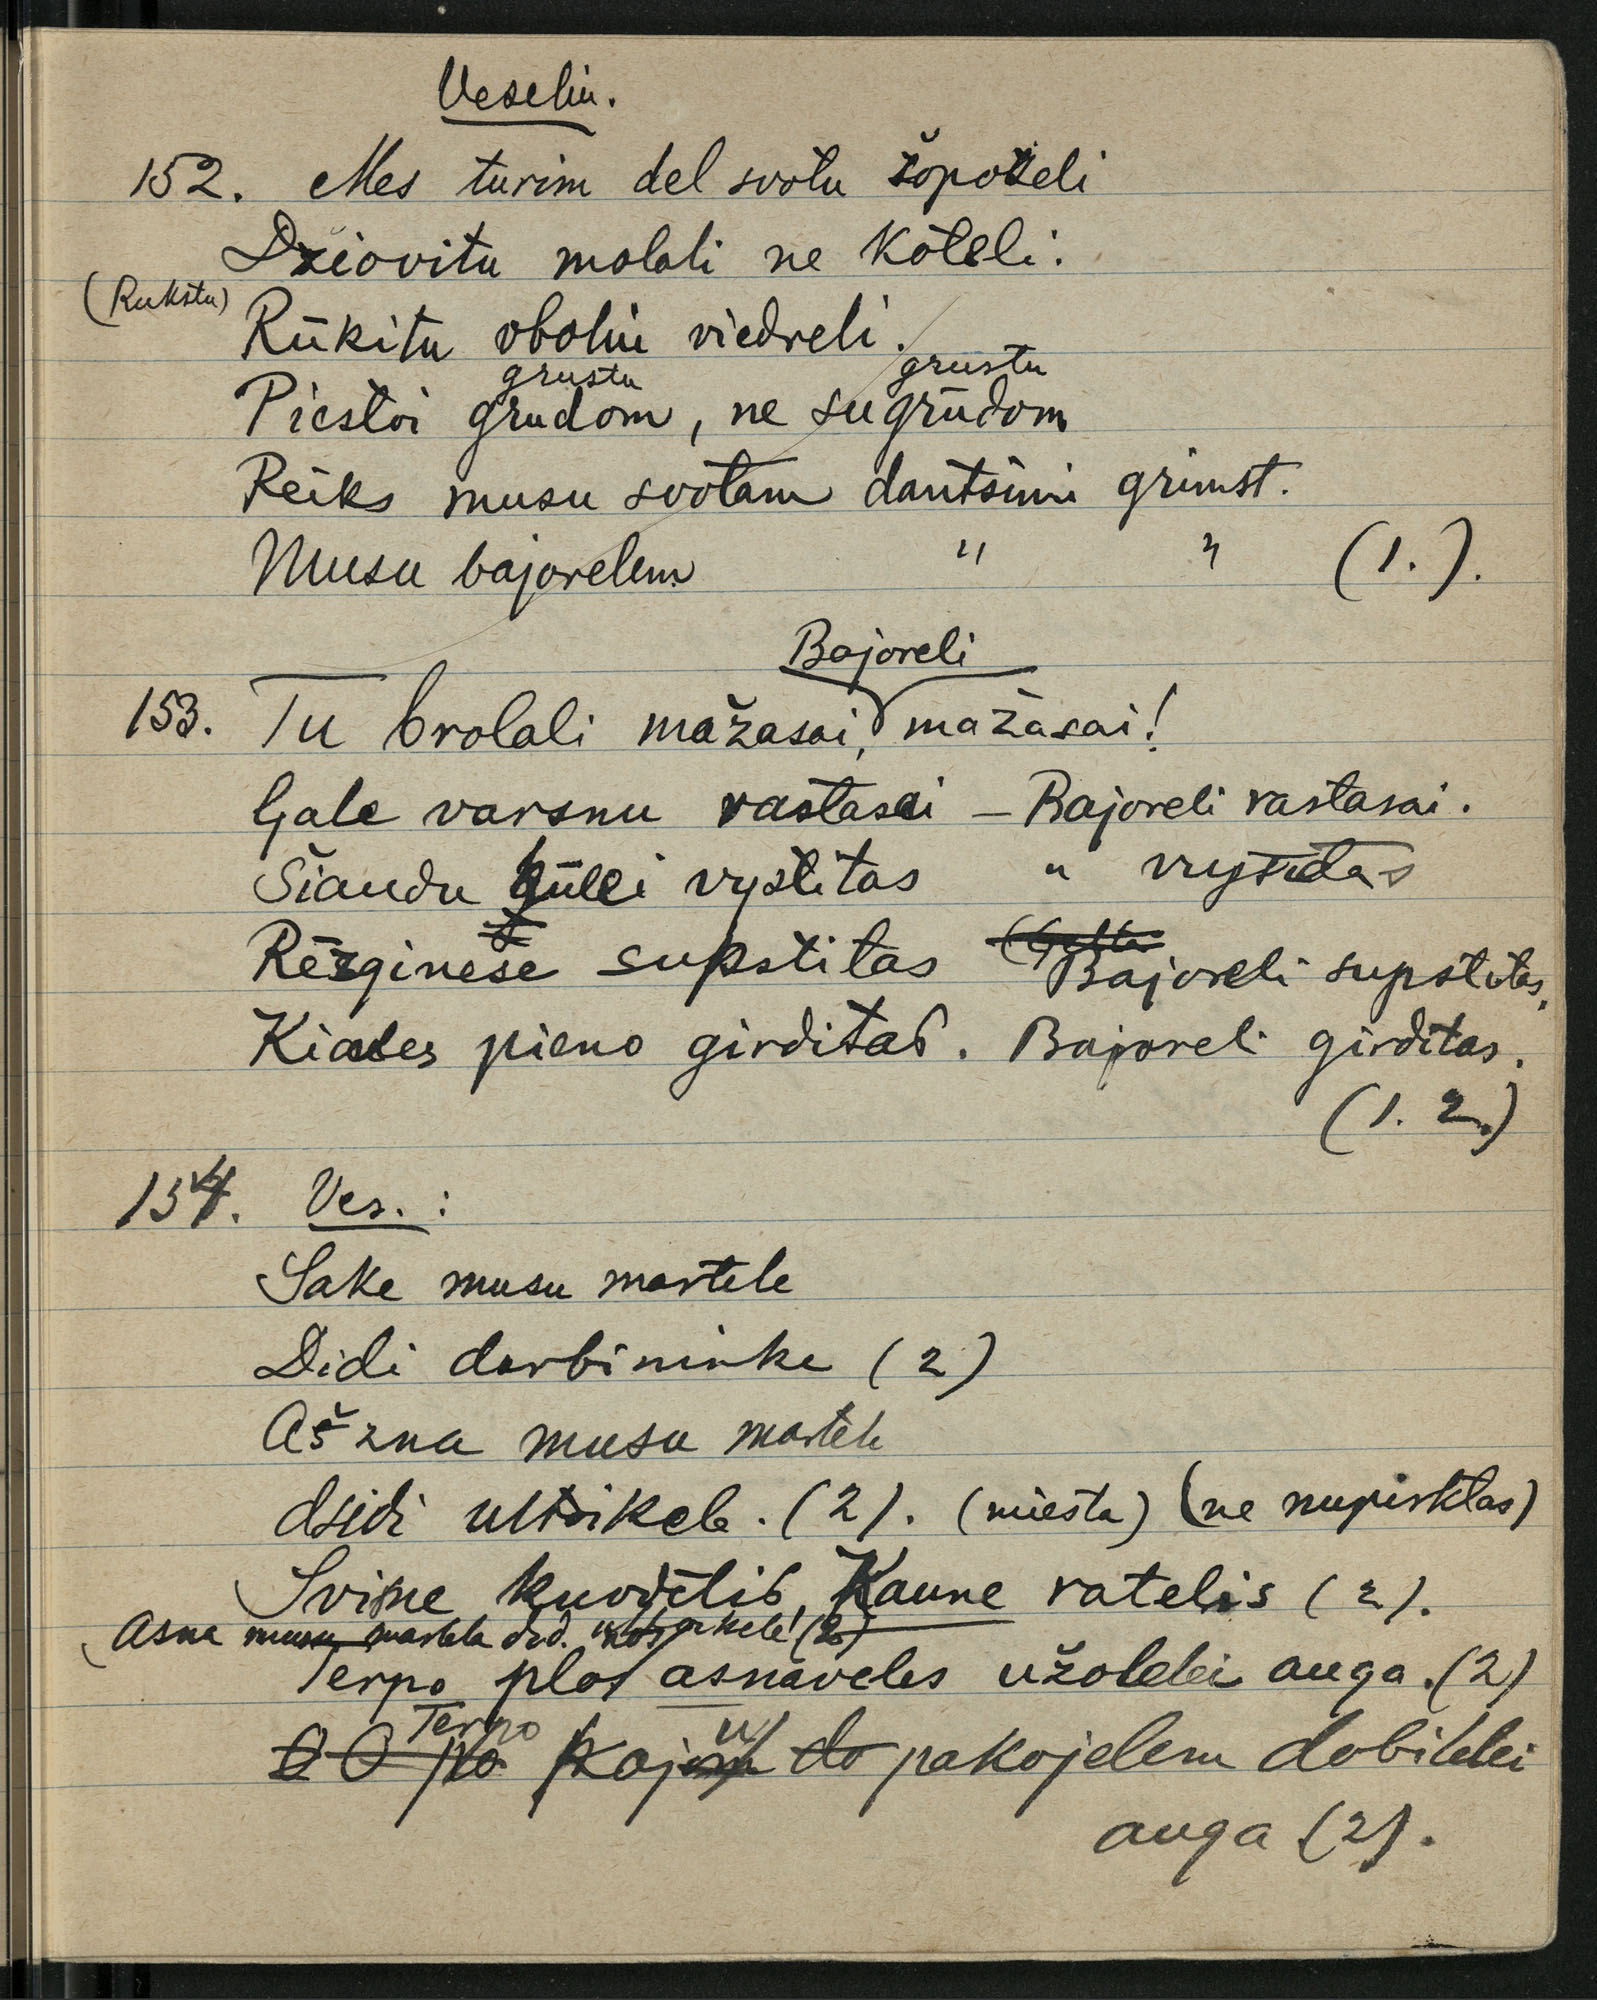 Veseliu.
152. Mes turim del svotu šopoteli
Džiovitu molali ne kōteli.
(Rukstu)
Rūkitu oboliu viedreli.
grustu grustu
Piestoi grudom, ne sugrūdom
Reiks musu svotam dantsimi grimst.
Musu bajorelem " " (1.).
Bajoreli
153. Tu brolali mažasai, mažasai!
Gale varsnu rastasai – Bajoreli rastasai.
Šiaudu kūlei vystitas " vystitas
Rēzginese supstitas Bajoreli supstitas,
Kiales pieno girditas. Bajoreli girditas.
(1. 2.)
154. Ves. :
Sake musu martele
Didi darbininke (2)
Aš zna musu martele
dsidi ultsikele. (2). (miesta) (ne nupirktas)
Svirne kuodelis, Kaune ratelis (2).
Asna musu martela did. (2)
Terpo plos asnaveles užolelei auga. (2)
Terpo
O O po koju do pakojelem dobilelei
auga (2).